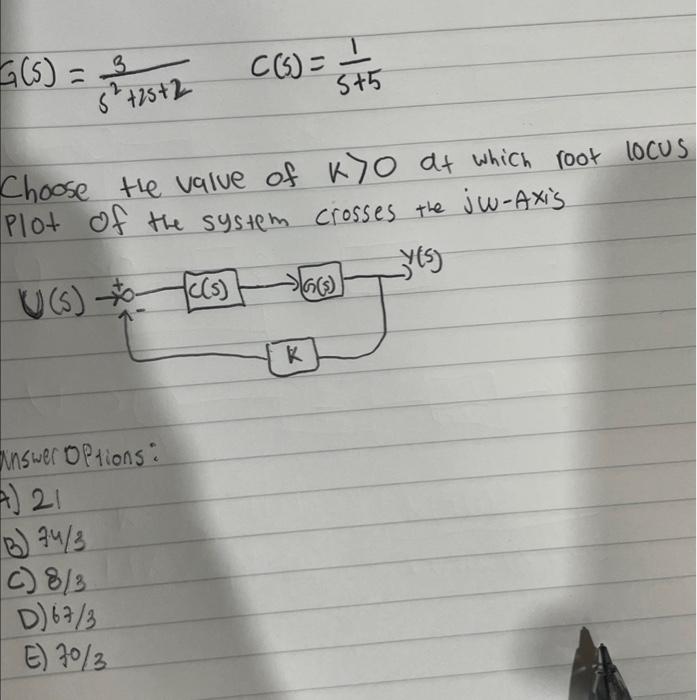 G(s) = 3/(s²+2s+2) C(s) = 1/(s+5)
Choose the value of K>0 at which root locus
Plot of the system crosses the jw-Axis
U(s) + - C(s) G(s) Y(s)
K
Answer Options:
A) 21
B) 74/3
C) 8/3
D) 67/3
E) 70/3